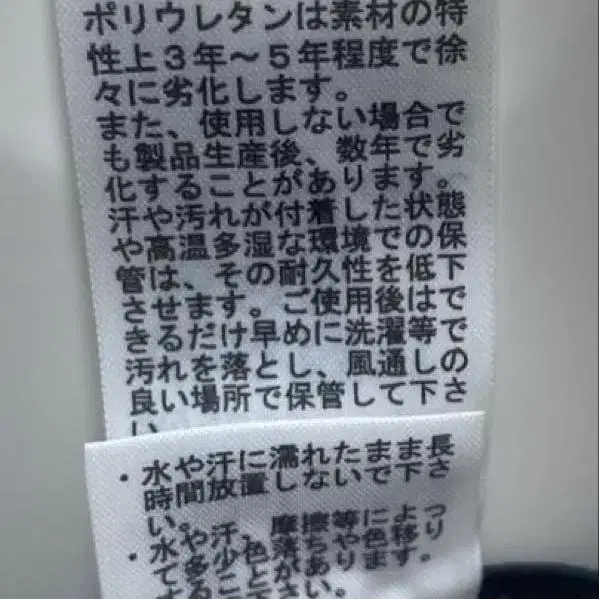 ポリウレタンは素材の特
性上3年～5年程度で徐
々に劣化します。
また、使用しない場合で
も製品生産後、数年で劣
化することがあります。
汗や汚れが付着した状態
や高温多湿な環境での保
管は、その耐久性を低下
させます。ご使用後はで
きるだけ早めに洗濯等で
汚れを落とし、風通しの
良い場所で保管して下さ
い
・水や汗に濡れたまま長
時間放置しないで下さ
い。
・水や汗、摩擦等によっ
て多少色落ちや色移り
することがあります。